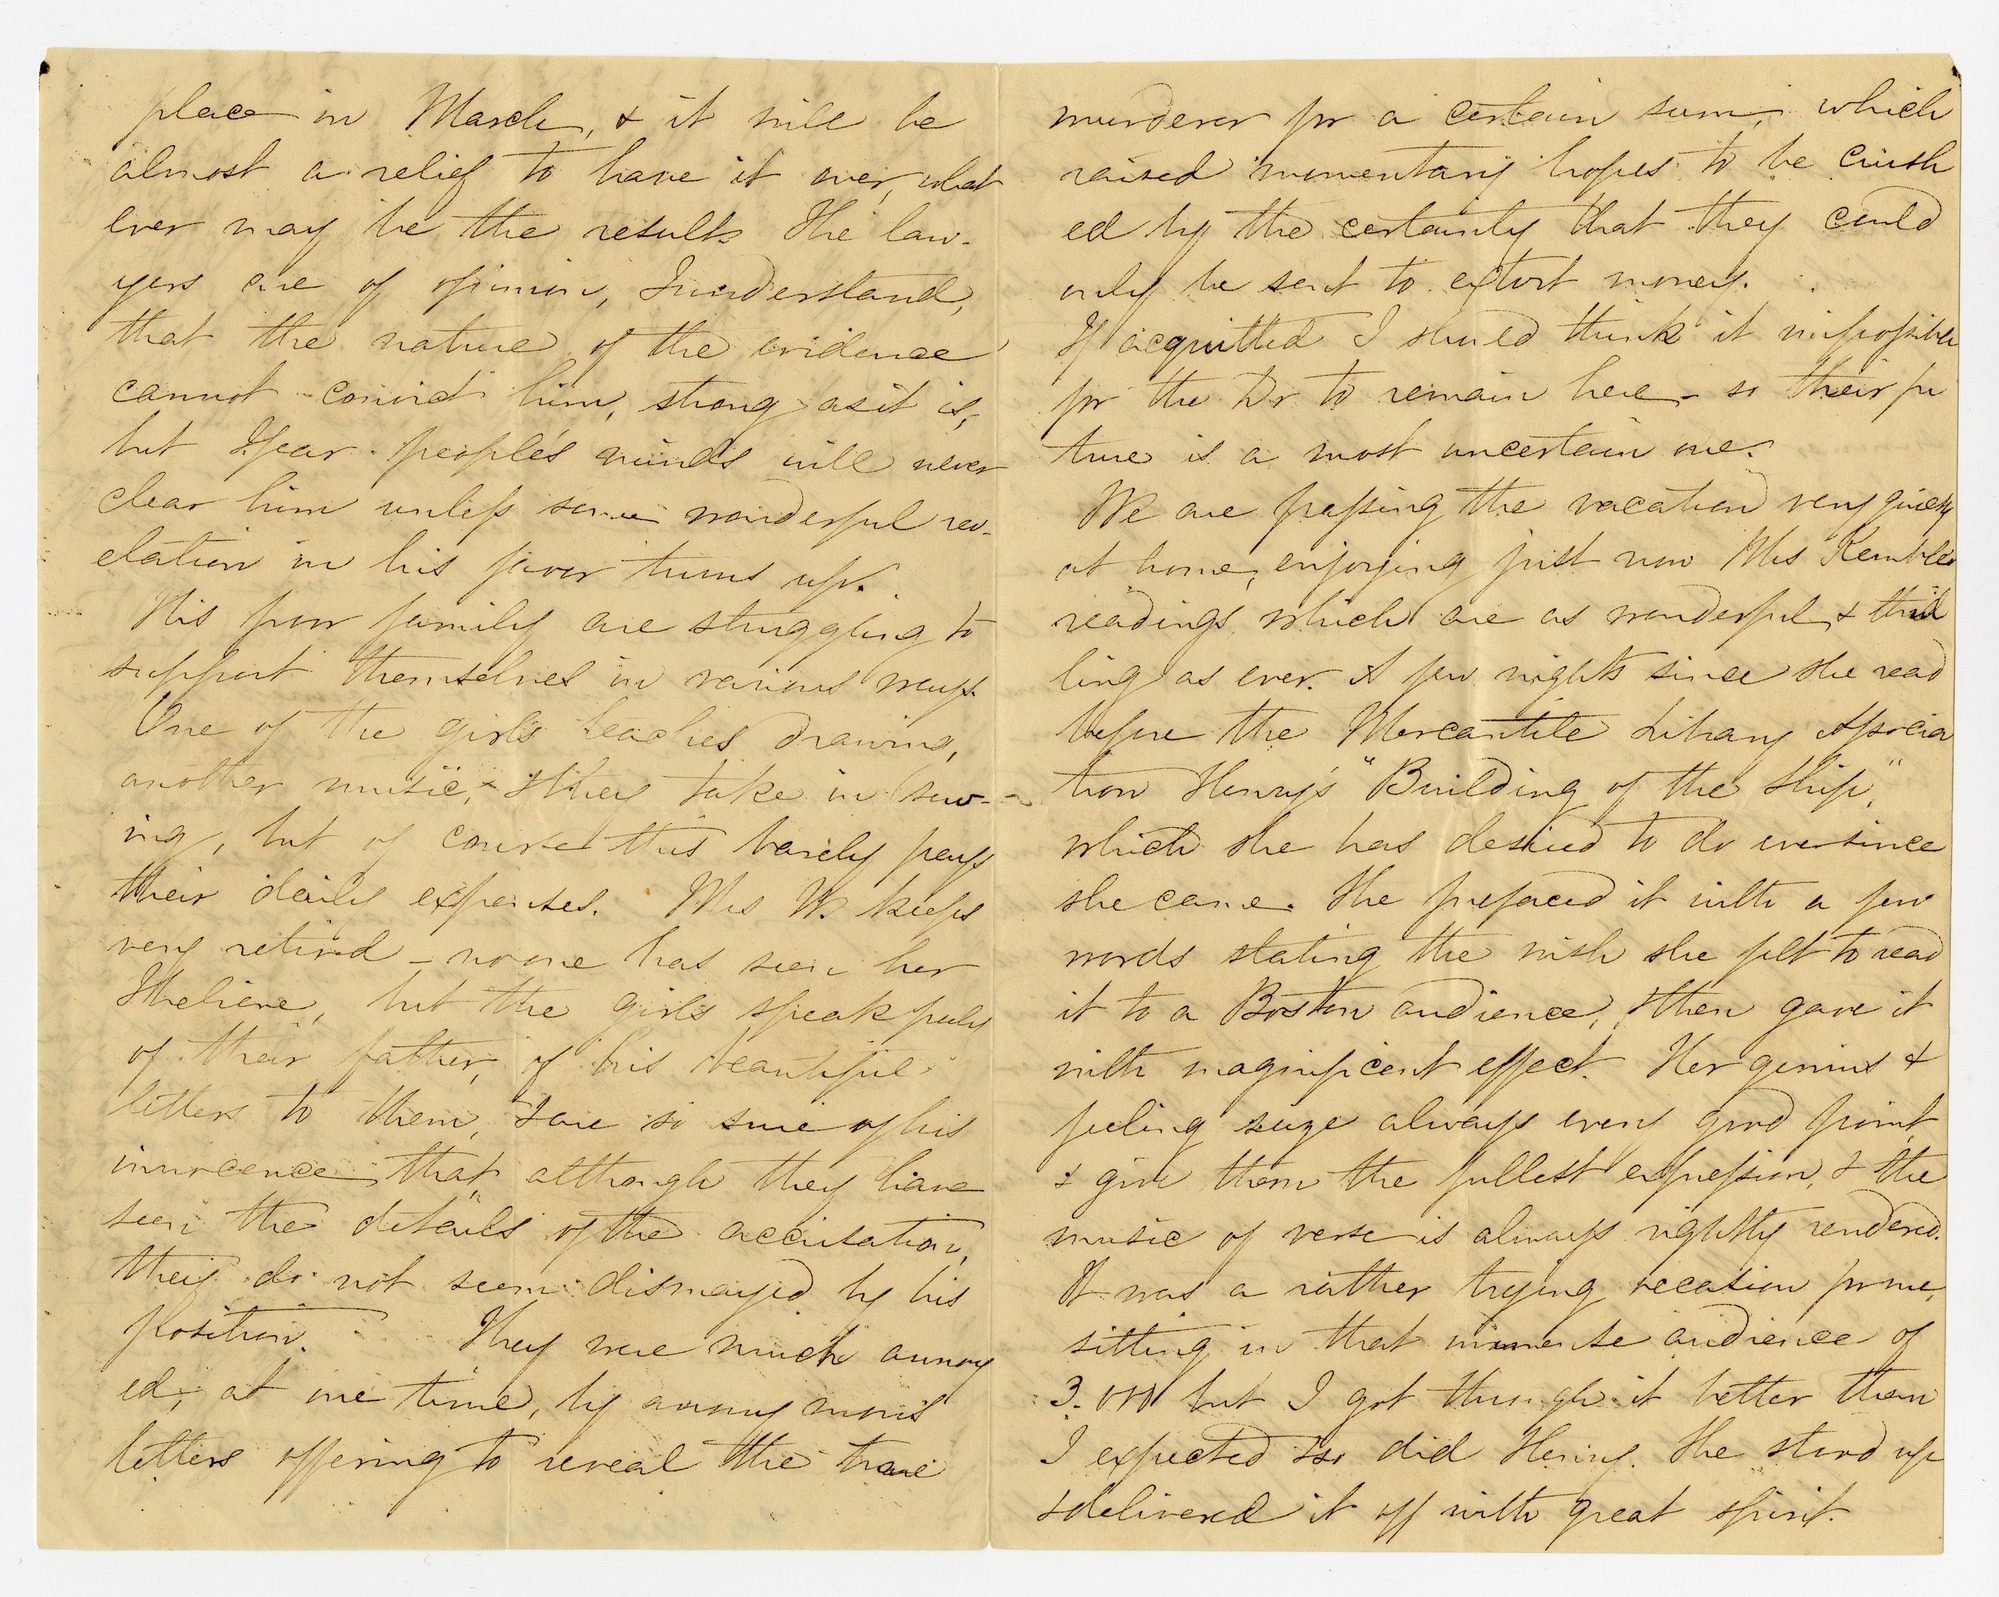 place in March, & it will be
almost a relief to have it over, what
ever may be the result. The law-
yers are of opinion, I understand,
that the nature of the evidence
cannot convict him, strong as it is,
but I fear people's minds will never
clear him unless some wonderful rev-
elation in his favor turns up.
His poor family are struggling to
support themselves in various ways.
One of the girls teaches drawing,
another music, & they take in sew-
ing, but of course this barely pays
their daily expenses. Mrs W. keeps
very retired – no one has seen her
I believe, but the girls speak freely
of their father, of his beautiful
letters to them, & are so sure of his
innocence that although they have
seen the details of the accusation,
they do not seem dismayed by his
position. They were much annoy
ed, at one time, by annonymous
letters offering to reveal the true
murderer for a certain sum, which
raised momentary hopes to be crush
ed by the certainty that they could
only be sent to extort money.
If acquitted I should think it impossible
for the Dr to remain here – so their fu
ture is a most uncertain one.
We are passing the vacation very quietly
at home, enjoying just now Mrs Kemble's
readings, which are as wonderful & thril
ling as ever. A few nights since she read
before the Mercantile Library Associa
tion Henry's "Building of the Ship,"
which she has desired to do ever since
she came. She prefaced it with a few
words stating the wish she felt to read
it to a Boston audience, & then gave it
with magnificent effect. Her genius &
feeling seize always every good point,
& give them the fullest expression, & the
music of verse is always rightly rendered.
It was a rather trying occasion for me,
sitting in that immense audience of
3.000 but I got through it better than
I expected & so did Henry. She stood up
& delivered it off with great spirit.